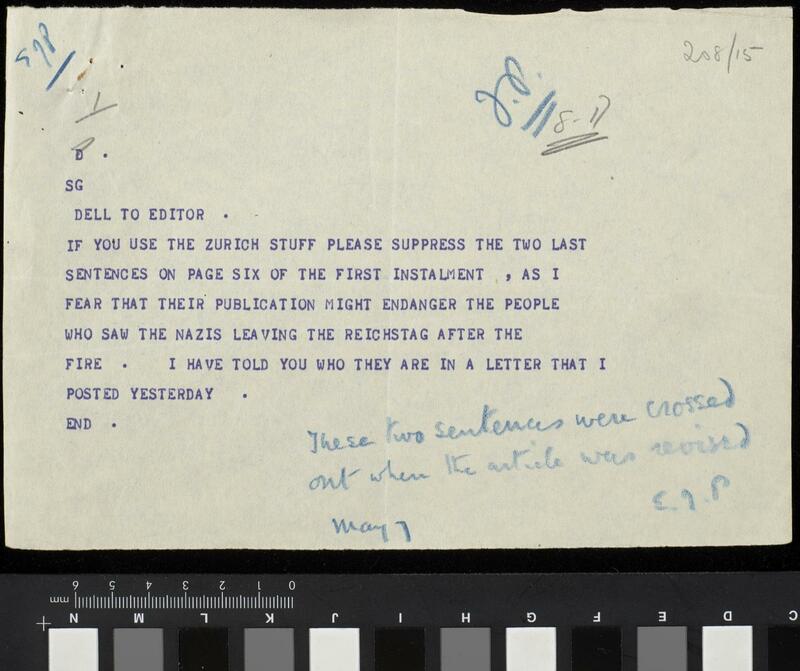 EJP
208/15
J.P.
8-17
D .
SG
DELL TO EDITOR .
IF YOU USE THE ZURICH STUFF PLEASE SUPPRESS THE TWO LAST
SENTENCES ON PAGE SIX OF THE FIRST INSTALMENT , AS I
FEAR THAT THEIR PUBLICATION MIGHT ENDANGER THE PEOPLE
WHO SAW THE NAZIS LEAVING THE REICHSTAG AFTER THE
FIRE . I HAVE TOLD YOU WHO THEY ARE IN A LETTER THAT I
POSTED YESTERDAY .
END .
These two sentences were crossed
out when the article was revised
E.J.P
May 7
mm 6 5 4 3 2 1 0
N M L K J I H G F E D C